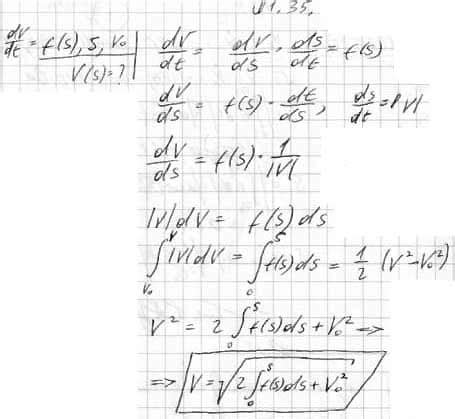 №1.35.
dv/dt = f(s), s, v₀
v(s) = ?
dv/dt = dv/ds · ds/dt = f(s)
dv/ds = f(s) · dt/ds, ds/dt = |v|
dv/ds = f(s) · 1/|v|
|v|dv = f(s)ds
∫_{v₀}^{v} |v|dv = ∫_{0}^{s} f(s)ds = 1/2 (v² - v₀²)
v² = 2 ∫_{0}^{s} f(s)ds + v₀² =>
=> v = √(2 ∫_{0}^{s} f(s)ds + v₀²)